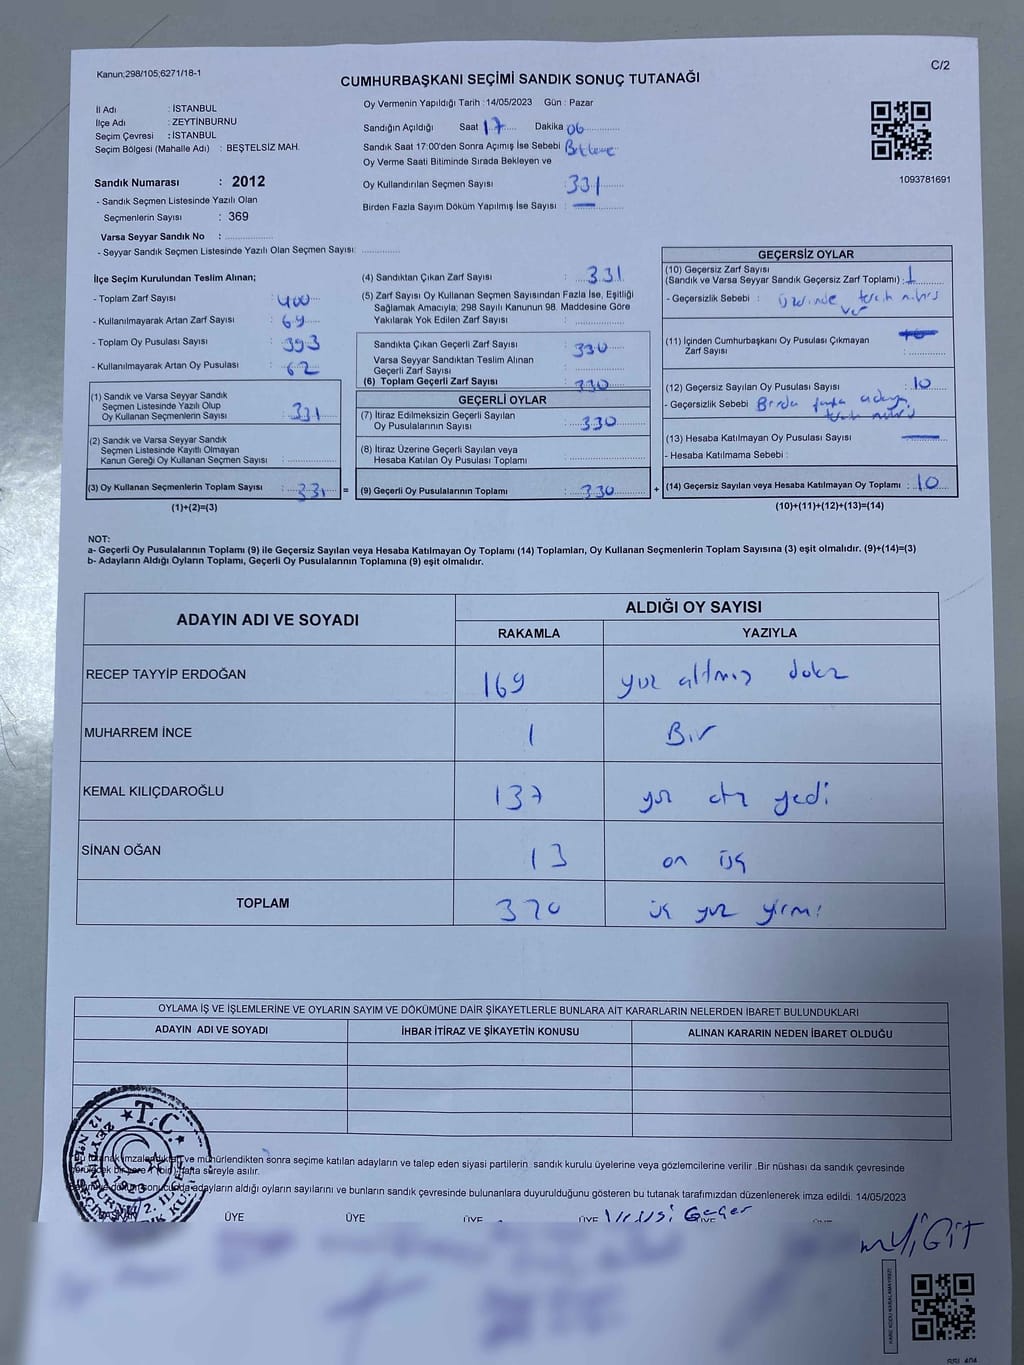 Kanun;298/105;6271/18-1
C/2
CUMHURBAŞKANI SEÇİMİ SANDIK SONUÇ TUTANAĞI
İl Adı : İSTANBUL
İlçe Adı : ZEYTİNBURNU
Seçim Çevresi : İSTANBUL
Seçim Bölgesi (Mahalle Adı) : BEŞTELSİZ MAH.
Sandık Numarası : 2012
- Sandık Seçmen Listesinde Yazılı Olan
Seçmenlerin Sayısı : 369
Varsa Seyyar Sandık No :
- Seyyar Sandık Seçmen Listesinde Yazılı Olan Seçmen Sayısı:
Oy Vermenin Yapıldığı Tarih :14/05/2023 Gün : Pazar
Sandığın Açıldığı Saat 17 Dakika 06
Sandık Saat 17:00'den Sonra Açımış İse Sebebi
Oy Verme Saati Bitiminde Sırada Bekleyen ve
Oy Kullandırılan Seçmen Sayısı : 331
Birden Fazla Sayım Döküm Yapılmış İse Sayısı : —
1093781691
İlçe Seçim Kurulundan Teslim Alınan;
- Toplam Zarf Sayısı : 400
- Kullanılmayarak Artan Zarf Sayısı : 69
- Toplam Oy Pusulası Sayısı : 393
- Kullanılmayarak Artan Oy Pusulası : 62
(1) Sandık ve Varsa Seyyar Sandık
Seçmen Listesinde Yazılı Olup
Oy Kullanan Seçmenlerin Sayısı : 331
(2) Sandık ve Varsa Seyyar Sandık
Seçmen Listesinde Kayıtlı Olmayan
Kanun Gereği Oy Kullanan Seçmen Sayısı :
(3) Oy Kullanan Seçmenlerin Toplam Sayısı : 331 =
(1)+(2)=(3)
(4) Sandıktan Çıkan Zarf Sayısı : 331
(5) Zarf Sayısı Oy Kullanan Seçmen Sayısından Fazla İse, Eşitliği
Sağlamak Amacıyla; 298 Sayılı Kanunun 98. Maddesine Göre
Yakılarak Yok Edilen Zarf Sayısı :
Sandıkta Çıkan Geçerli Zarf Sayısı : 330
Varsa Seyyar Sandıktan Teslim Alınan
Geçerli Zarf Sayısı :
(6) Toplam Geçerli Zarf Sayısı : 330
GEÇERLİ OYLAR
(7) İtiraz Edilmeksizin Geçerli Sayılan
Oy Pusulalarının Sayısı : 330
(8) İtiraz Üzerine Geçerli Sayılan veya
Hesaba Katılan Oy Pusulası Toplamı :
(9) Geçerli Oy Pusulalarının Toplamı : 330 +
GEÇERSİZ OYLAR
(10) Geçersiz Zarf Sayısı
(Sandık ve Varsa Seyyar Sandık Geçersiz Zarf Toplamı) : 1
- Geçersizlik Sebebi : üzerinde tercih mührü
var
(11) İçinden Cumhurbaşkanı Oy Pusulası Çıkmayan
Zarf Sayısı :
(12) Geçersiz Sayılan Oy Pusulası Sayısı : 10
- Geçersizlik Sebebi Birden fazla adaya
tercih mührü
(13) Hesaba Katılmayan Oy Pusulası Sayısı —
- Hesaba Katılmama Sebebi :
(14) Geçersiz Sayılan veya Hesaba Katılmayan Oy Toplamı : 10
(10)+(11)+(12)+(13)=(14)
NOT:
a- Geçerli Oy Pusulalarının Toplamı (9) ile Geçersiz Sayılan veya Hesaba Katılmayan Oy Toplamı (14) Toplamları, Oy Kullanan Seçmenlerin Toplam Sayısına (3) eşit olmalıdır. (9)+(14)=(3)
b- Adayların Aldığı Oyların Toplamı, Geçerli Oy Pusulalarının Toplamına (9) eşit olmalıdır.
ADAYIN ADI VE SOYADI ALDIĞI OY SAYISI
RAKAMLA YAZIYLA
RECEP TAYYİP ERDOĞAN 169 yüz altmış dokuz
MUHARREM İNCE 1 Bir
KEMAL KILIÇDAROĞLU 137 yüz otuz yedi
SİNAN OĞAN 13 on üç
TOPLAM 320 üç yüz yirmi
OYLAMA İŞ VE İŞLEMLERİNE VE OYLARIN SAYIM VE DÖKÜMÜNE DAİR ŞİKAYETLERLE BUNLARA AİT KARARLARIN NELERDEN İBARET BULUNDUKLARI
ADAYIN ADI VE SOYADI İHBAR İTİRAZ VE ŞİKAYETİN KONUSU ALINAN KARARIN NEDEN İBARET OLDUĞU
Bu tutanak imzalandıktan ve mühürlendikten sonra seçime katılan adayların ve talep eden siyasi partilerin sandık kurulu üyelerine veya gözlemcilerine verilir .Bir nüshası da sandık çevresinde
görülecek bir yere 1 (bir) hafta süreyle asılır.
sonucunda adayların aldığı oyların sayılarını ve bunların sandık çevresinde bulunanlara duyurulduğunu gösteren bu tutanak tarafımızdan düzenlenerek imza edildi. 14/05/2023
BAŞKAN ÜYE ÜYE ÜYE ÜYE ÜYE ÜYE
T.C.
1923
KARE KODU KARALAMAYINIZ!